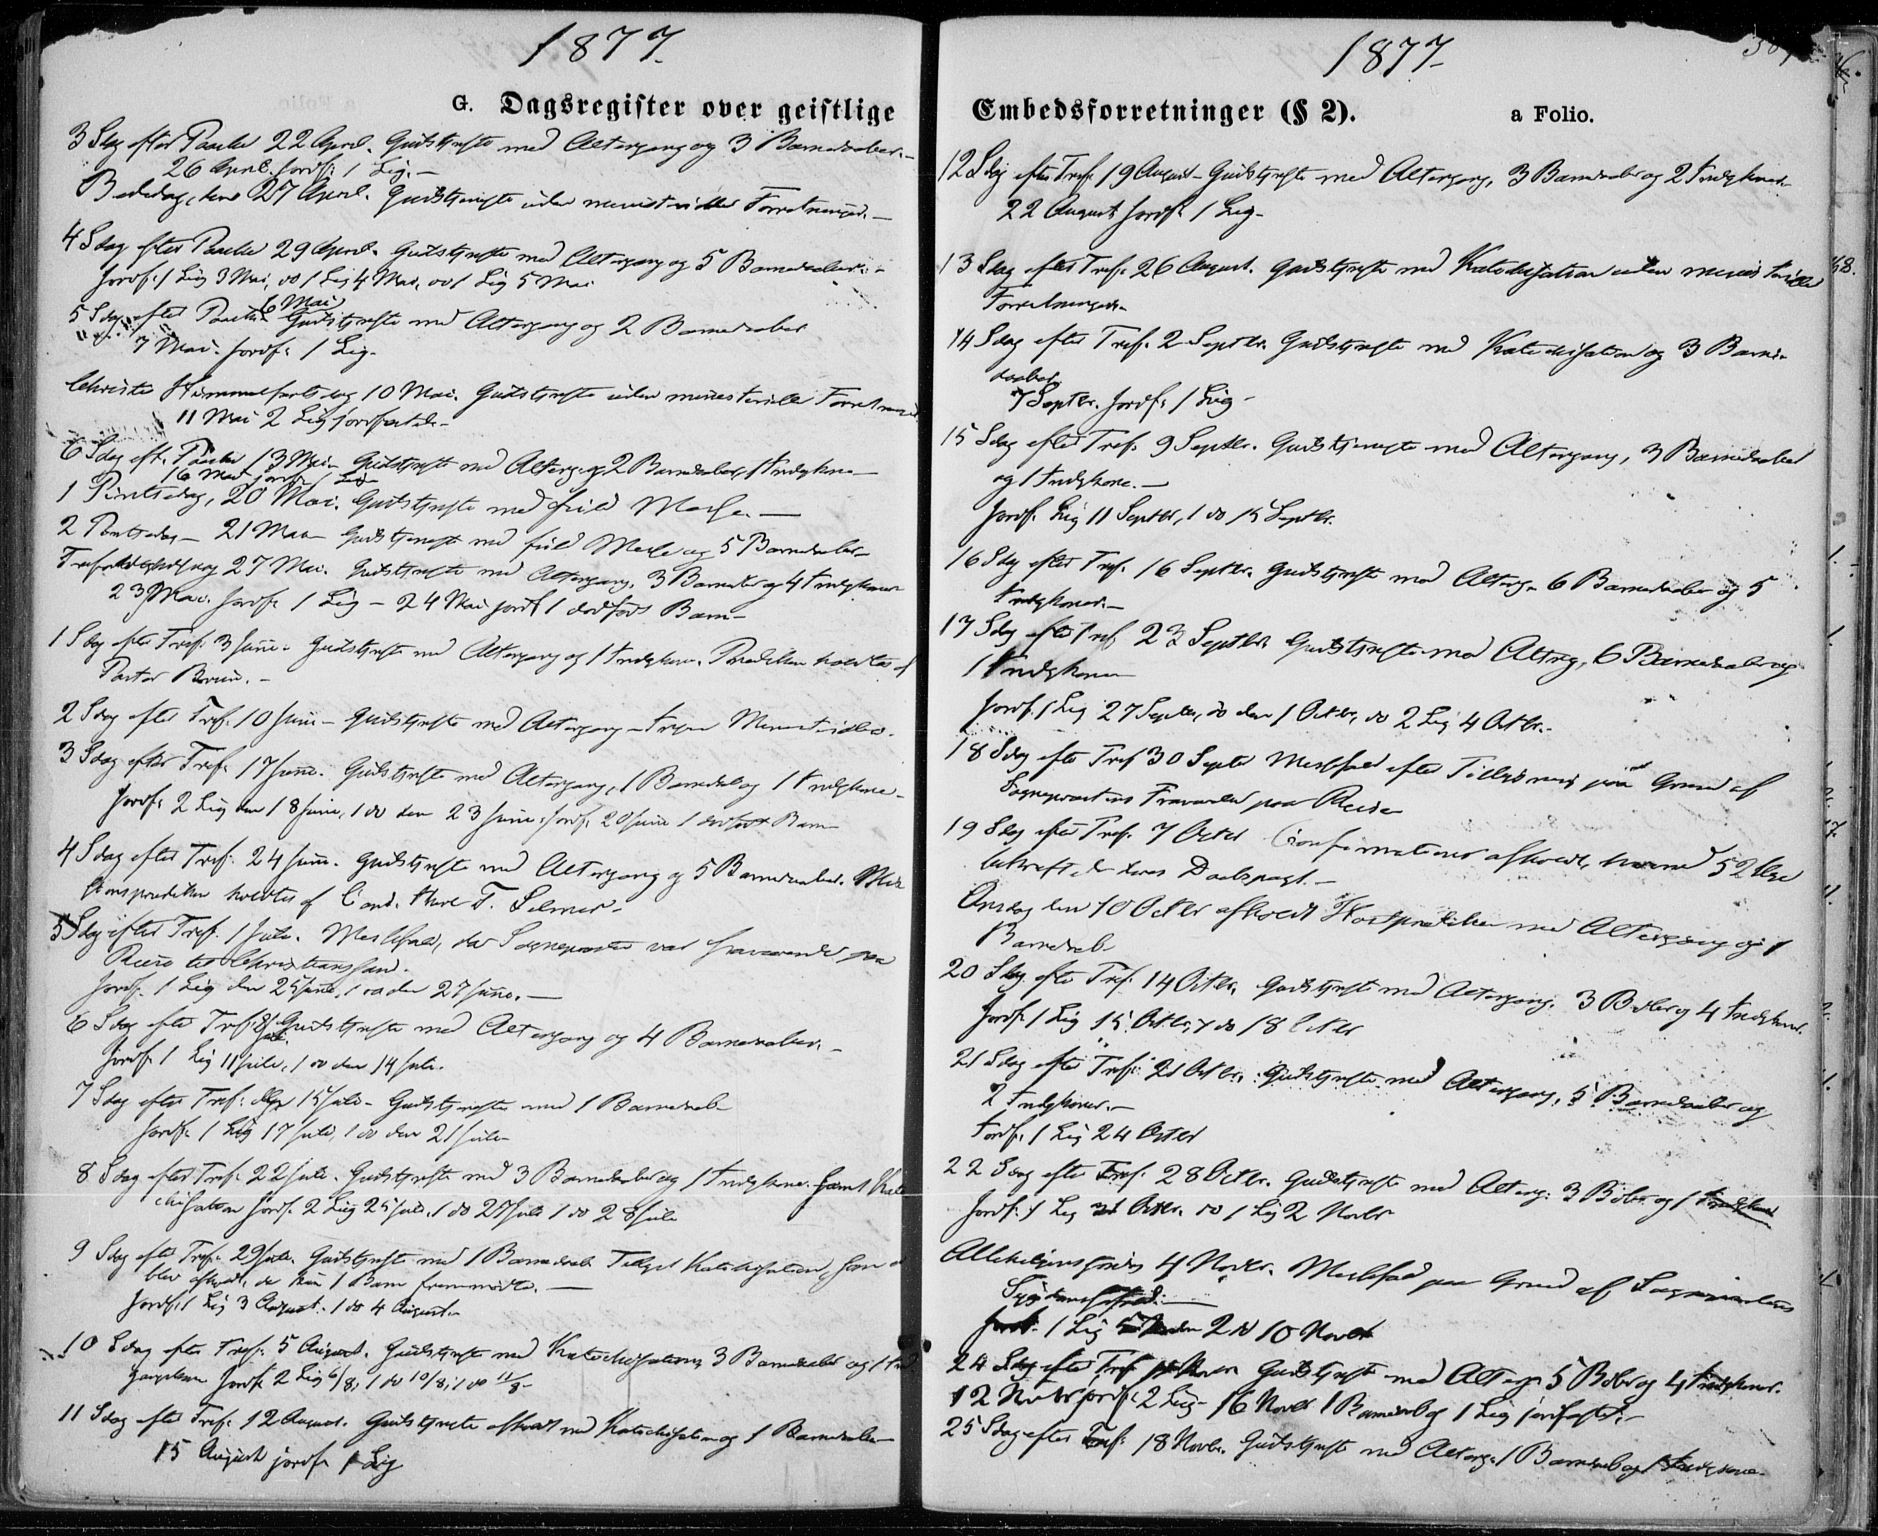 1877.
G. Dagsregister over geistlige
3 Sdag efter Paaske 22 April. Gudstjeneste med Altergang og 3 Barnedaaber.
26 April jordf. 1 Lig.
Bededag, den 27 April. Gudstjeneste uden ministerielle Forretninger.
4 Sdag efter Paaske 29 April. Gudstjeneste med Altergang og 5 Barnedaaber.
Jordf. 1 Lig 3 Mai, do 1 Lig 4 Mai, do 1 Lig 5 Mai
5 Sdag efter Paaske 6 Mai Gudstjeneste med Altergang og 2 Barnedaaber
7 Mai. Jordf. 1 Lig.
Christi Himmelfartsdag 10 Mai. Gudstjeneste uden ministerielle Forretninger
11 Mai 2 Lig jordfæstede.
6 Sdag eft. Paaske 13 Mai. Gudstjeneste med Alterg. og 2 Barnedaaber, 1 Indgkone
16 Mai jordf. 1 Lig
1 Pintsedag, 20 Mai. Gudstjeneste med fuld Messe.
2 Pintsedag 21 Mai Gudstjeneste med fuld Messe og 5 Barnedaaber
Trefoldighedsdag 27 Mai. Gudstjeneste med Altergang, 3 Barnedaab og 4 Indgkoner
23 Mai. Jordf. 1 Lig - 24 Mai jordf. 1 dødfødt Barn
1 Sdag efter Tref. 3 Juni. Gudstjeneste med Altergang og 1 Indgkone. Prædiken holdtes af
Pastor
2 Sdag efter Tref. 10 Juni - Gudstjeneste med Altergang -
3 Sdag efter Tref. 17 Juni. Gudstjeneste med Altergang, 1 Barnedaab og 1 Indgkone
Jordf. 2 Lig den 18 Juni, 1 do den 23 Juni. Jordf. 20 Juni 1 dødfødt Barn
4 Sdag efter Tref. 24 Juni. Gudstjeneste med Altergang og 5 Barnedaaber.
prædiken holdtes af Cand. theol F. Selmer.
5 Sdag efter Tref. 1 Juli. Messefald, da Sognepræsten var fraværende paa
Reise til Christianssand.
Jordf. 1 Lig den 25 Juni, 1 do den 27 Juni.
6 Sdag efter Tref. 8 Juli Gudstjeneste med Altergang og 4 Barnedaaber.
Jordf. 1 Lig 11 Juli, 1 do den 14 Juli.
7 Sdag efter Tref. 15 Juli - Gudstjeneste med 1 Barnedaab
Jordf. 1 Lig 17 Juli, 1 do den 21 Juli
8 Sdag efter Tref. 22 Juli. Gudstjeneste med 3 Barnedaaber og 1 Indgkone. samt Kate
chisation Jordf. 2 Lig 25 Juli, 1 do 27 Juli 1 do 28 Juli
9 Sdag efter Tref. 29 Juli. Gudstjeneste med 1 Barnedaab Katechisation, som
blev afholdt, da kun 1 Barn fremmødte.
Jordf. 1 Lig 3 August. 1 do 4 August.
10 Sdag efter Tref. 5 August. Gudstjeneste med Katechisation, 3 Barnedaaber og 1 Ind
gangskone Jordf. 2 Lig 6/8, 1 do 10/8, 1 do 11/8.
11 Sdag efter Tref. 12 August. Gudstjeneste afholdt med Katechisation og 1 Barnedaab
15 August jordf. 1 Lig
1877.
Embedsforretninger (§ 2).
a Folio.
12 Sdag efter Tref. 19 August - Gudstjeneste med Altergang, 3 Barnedaaber og 2 Indgkoner
22 August jordf. 1 Lig.
13 Sdag efter Tref. 26 August. Gudstjeneste med Katechisation uden ministerielle
Forretninger.
14 Sdag efter Tref. 2 Septbr. Gudstjeneste med Katechisation og 3 Barne-
daaber.
7 Septbr. Jordf. 1 Lig
15 Sdag efter Tref. 9 Septbr. Gudstjeneste med Altergang, 3 Barnedaaber
og 1 Indgkone.
Jordf. Lig 11 Septbr, 1 do 15 Septbr.
16 Sdag efter Tref. 16 Septbr. Gudstjeneste med Alterg. 6 Barnedaaber og 5
Indgkoner.
17 Sdag efter Tref. 23 Septbr. Gudstjeneste med Alterg, 6 Barnedaab og
1 Indgkone
Jordf. 1 Lig 27 Septbr, do den 1 Octbr, do 2 Lig 4 Octbr.
18 Sdag efter Tref 30 Septbr Messefald efter Tillysning paa Grund af
Sognepræstens Fravær paa Reise
19 Sdag efter Tref. 7 Octbr Confirmation afholdt, hvorved 52 Unge
bekræftede deres Daabspagt.
Onsdag den 10 Octbr afholdt Høstprædiken med Altergang og 1
Barnedaab
20 Sdag efter Tref. 14 Octbr. Gudstjeneste med Altergang. 3 Bdaaber og 4 Indgkoner.
Jordf. 1 Lig 15 Octbr, do 18 Octbr
21 Sdag efter Tref. 21 Octbr. Gudstjeneste med Altergang, 5 Barnedaaber og
2 Indgkoner.
Jordf. 1 Lig 24 Octbr
22 Sdag efter Tref. 28 Octbr. Gudstjeneste med Alterg. 3 Bdbr og 1 Indgkone
Jordf. 1 Lig 31 Octbr. do 1 Lig 2 Novbr
Allehelgensdag 4 Novbr. Messefald paa Grund af Sognepræstens
Sygdomsforfald.
Jordf. 1 Lig 2 do 10 Novbr
24 Sdag efter Tref Gudstjeneste med Alterg. 5 Bdbr og 4 Indgkoner.
12 Novbr jordf. 2 Lig - 16 Novbr 1 Barnedaab og 1 Lig jordfæstet.
25 Sdag efter Tref. 18 Novbr. Gudstjeneste med Alterg. 1 Barnedaab og 1 Indgkone.